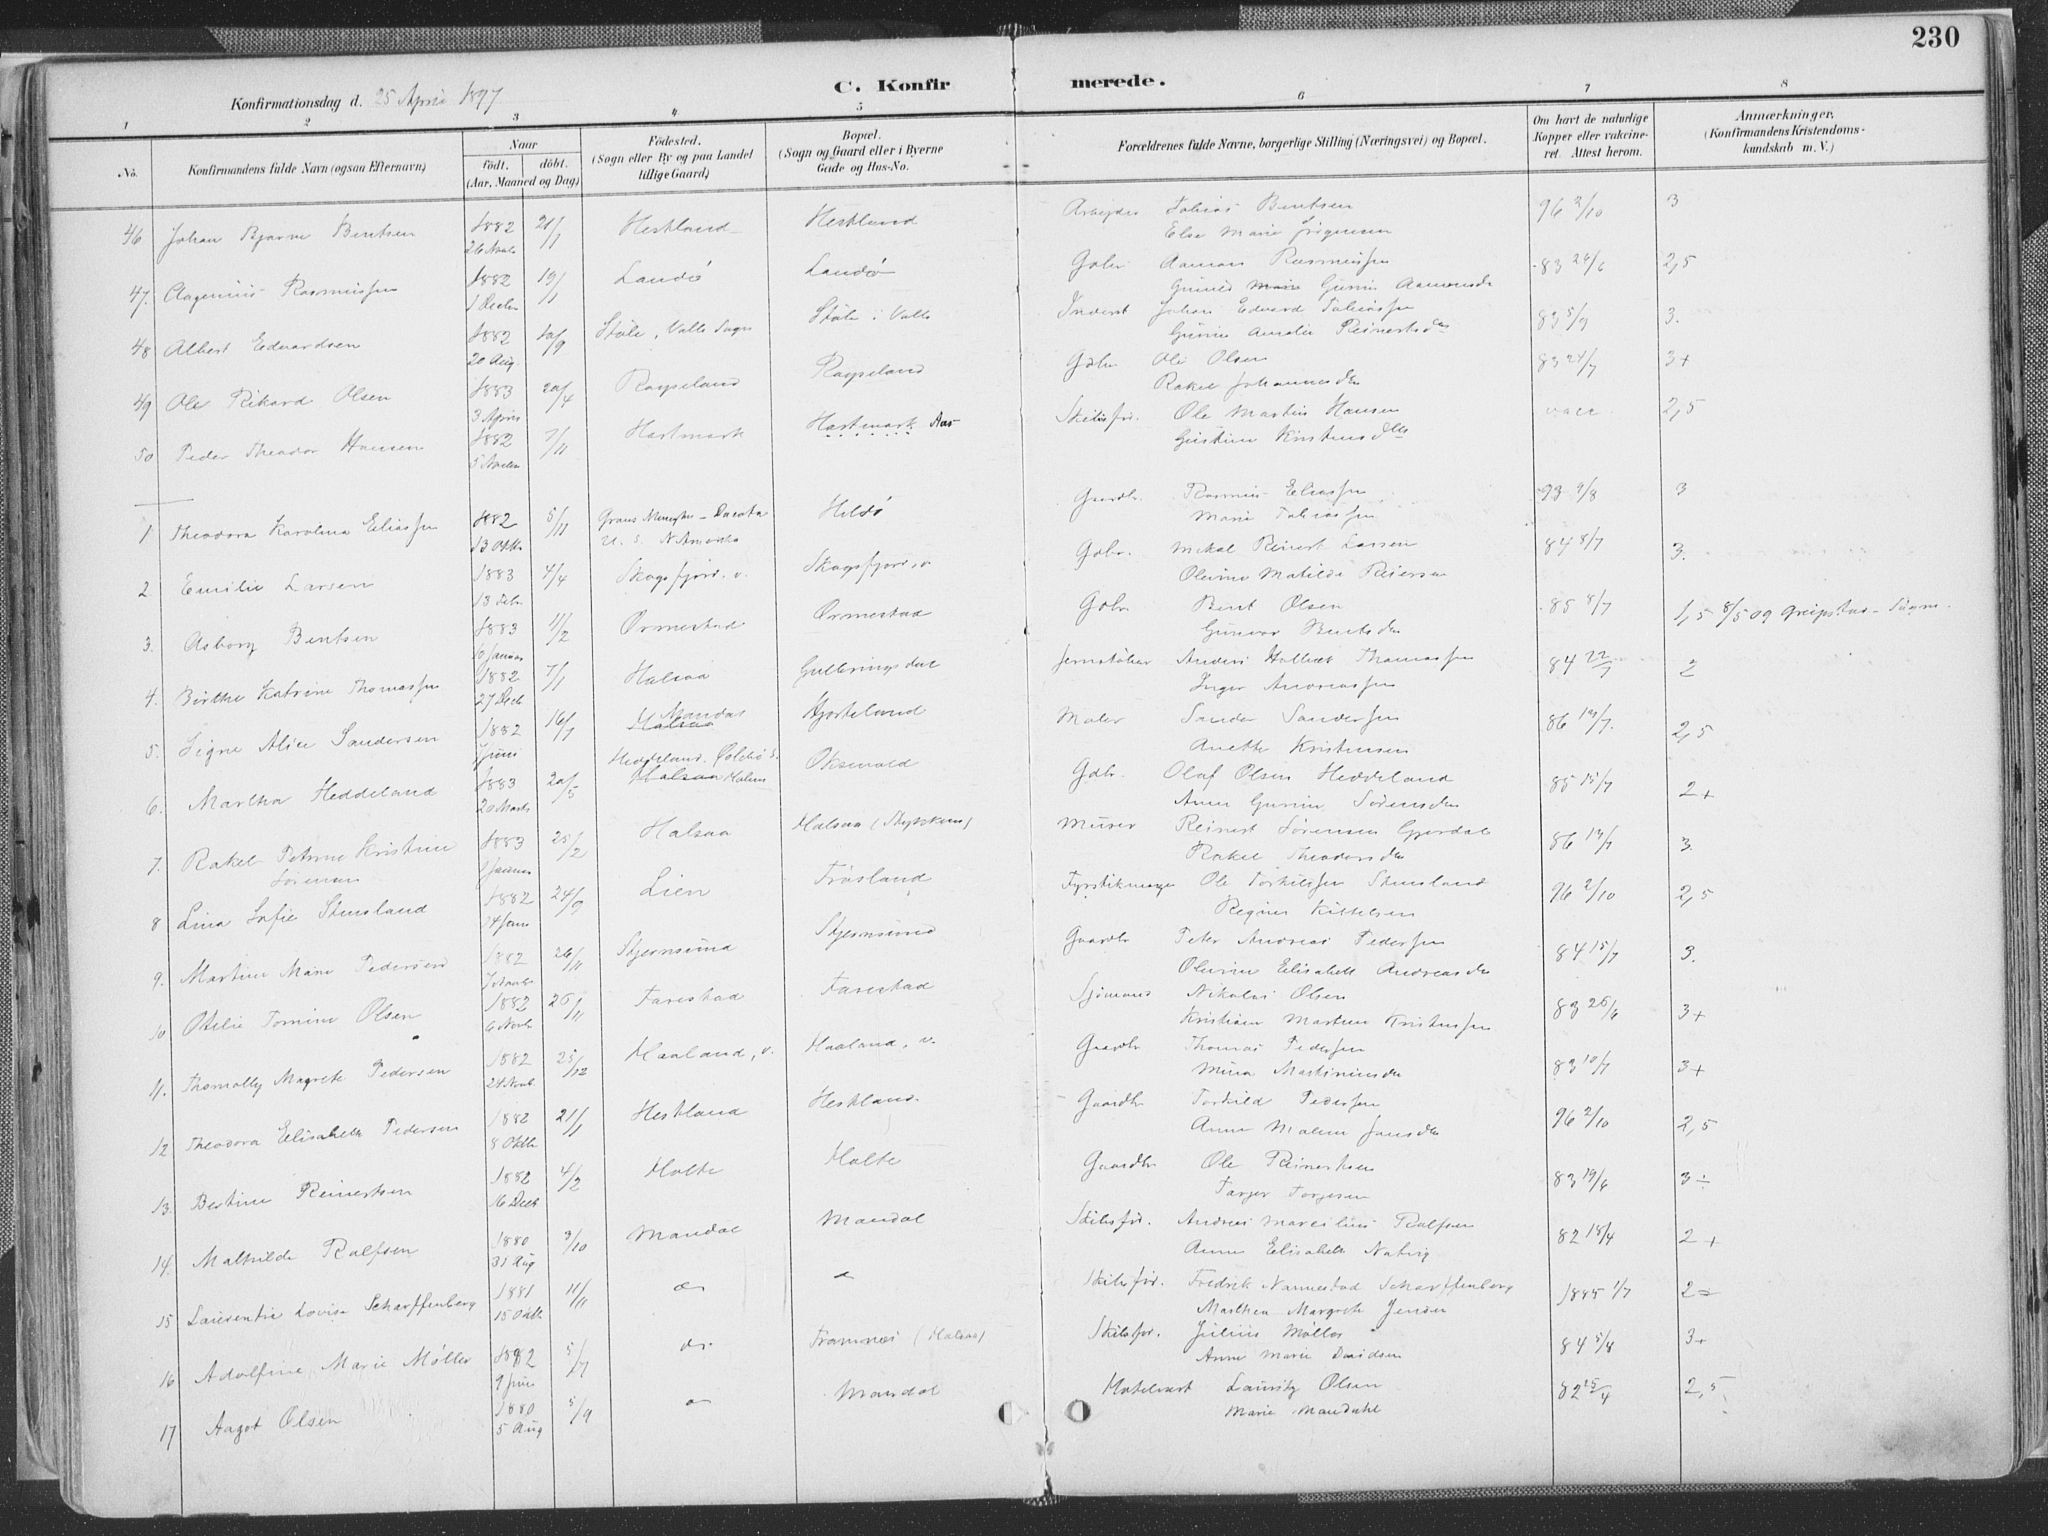 230
Konfirmationsdag d. 25 April 1897
C. Konfirmerede.
1 2 3 4 5 6 7 8
No.
Konfirmandens fulde Navn (ogsaa Efternavn)
Naar
födt. döbt.
(Aar, Maaned og Dag)
Födested.
(Sogn eller By og paa Landet
tillige Gaard)
Bopæl.
(Sogn og Gaard eller i Byerne
Gade og Hus-No.
Forældrenes fulde Navne, borgerlige Stilling (Næringsvei) og Bopæl.
Om havt de naturlige
Kopper eller vakcine-
ret. Attest herom.
Anmærkninger.
(Konfirmandens Kristendoms-
kundskab m. V.)
46 Johan Bjarne Bentsen 1882 26 Novbr 21/1 Hestland Hestland Arbejder Tobias Bentsen 96 2/10 3
Else Marie Jörgensen
47. Aagenius Rasmussen 1882 1 Decbr 19/1 Landö Landö Gdbr Aamon Rasmussen 83 26/6 2,5
48 Albert Edvardsen 1882 20 Aug 10/9 Støle, Valle Sogn Støle i Valle Inderst Johan Edvard Tobiassen 83 5/9 3.
Gunine Amalie Reinertsdr
49 Ole Rikard Olsen 1883 3 April 20/4 Røyseland Røyseland Gdbr Ole Olsen 83 24/7 3+
Rakel Johannesdr
50 Peder Theodor Hansen 1882 5 Novbr 7/11 Hartmark Hartmark Aas Skibsför. Ole Martin Hansen vacc. 2,5
1 Theodora Karolina Eliassen 1882 13 Oktbr 5/11 Dacota U. S. N. Amerika Hildö Gaardbr. Rasmus Eliassen 93 9/8 3
Marie Tobiassen
2 Emilie Larsen 1883 13 Febr 4/4 Skogsfjord, v. Skogsfjord, v Gdbr. Mikal Reinert Larsen 84 8/7 3.
Olevine Matilde Reiersen
3. Asborg Bentsen 1883 10 Januar 11/2 Ormestad Ormestad Gdbr Bent Olsen 85 8/7 1,5 8/5 09 Greipstad - Sögne.
Gunvor Bentsdr
4. Birthe Katrine Thomassen 1882 27 Decb 7/1 Halsaa Gulleringsdal Jernstøber Anders Thomassen 84 22/7 2
Inger Andreassen
5. Signe Alice Sandersen 1882 7 Juni 16/7 Mandal Hjorteland Maler Sander Sandersen 86 19/7. 2,5
Anette Kristensen
6. Martha Heddeland 1883 20 Marts 20/5 Heddeland. Øslebø S. Halsaa Oksevold Gdbr. Olaf Olsen Heddeland 85 15/7 2+
Anne Gurine Sörensdr
7. Rakel Petrine Kristine Sörensen 1883 9 Januar 25/2 Halsaa Halsaa Murer Reinert Sørensen Gjerdal 86 19/7 3.
Rakel Theodorsdr
8 Lina Sofie Stensland 1882 24/9 Lien Frøsland Ole Torkildsen Stensland 96 2/10 2,5
Regine Kittelsen
9. Martine Marie Pedersen 1882 26/11 Stjernsund Stjernsund Gaardbr Peter Andreas Pedersen 84 15/7 3.
Olevine Elisabeth Andreasdr
10 Otilie Tomine Olsen 1882 6 Novb 26/11 Farestad Farestad Sjömand Nikolai Olsen 83 26/6 3+
Kristiane Martine Kristensen
11. Thomally Magrete Pedersen 1882 24 Novb. 25/12 Haaland, v. Haaland, v. Gaardbr Thomas Pedersen 83 10/7 3+
Mina Martiniusdr
12 Theodora Elisabeth Pedersen 1882 8 Oktbr 21/1 Hestland Hestland. Gaardbr Torkild Pedersen 96 2/10 2,5
Anne Malene Jansdr
13. Bertine Reinertsen 1882 16 Decb 4/2 Holte Holte Gaardbr Ole Reinertsen 83 19/6 3÷
Tarjer Torjesen
14. Mathilde Ralfsen 1880 31 Aug 3/10 Mandal Mandal Skibsför. Andreas Marcilius Ralfsen 82 18/4 2+
Anne Elisabeth Natvig
15 Laurentse Lovise Scharffenberg 1881 15 Oktb 11/11 Skibsför. Fredrik Nannestad Scharffenberg 1885 1/7 2÷
Marthea Margrete Jensen
16 Adolfine Marie Møller 1882 9 Juni 5/7 do. Framnæs (Halsaa) Skibsför. Julius Møller 84 5/8 3+
Anne Marie Davidsen
17 Aagot Olsen 1880 5 Aug 5/9 Mandal Hotelvert Lauritz Olsen 82 25/4 2,5
Marie Mandahl